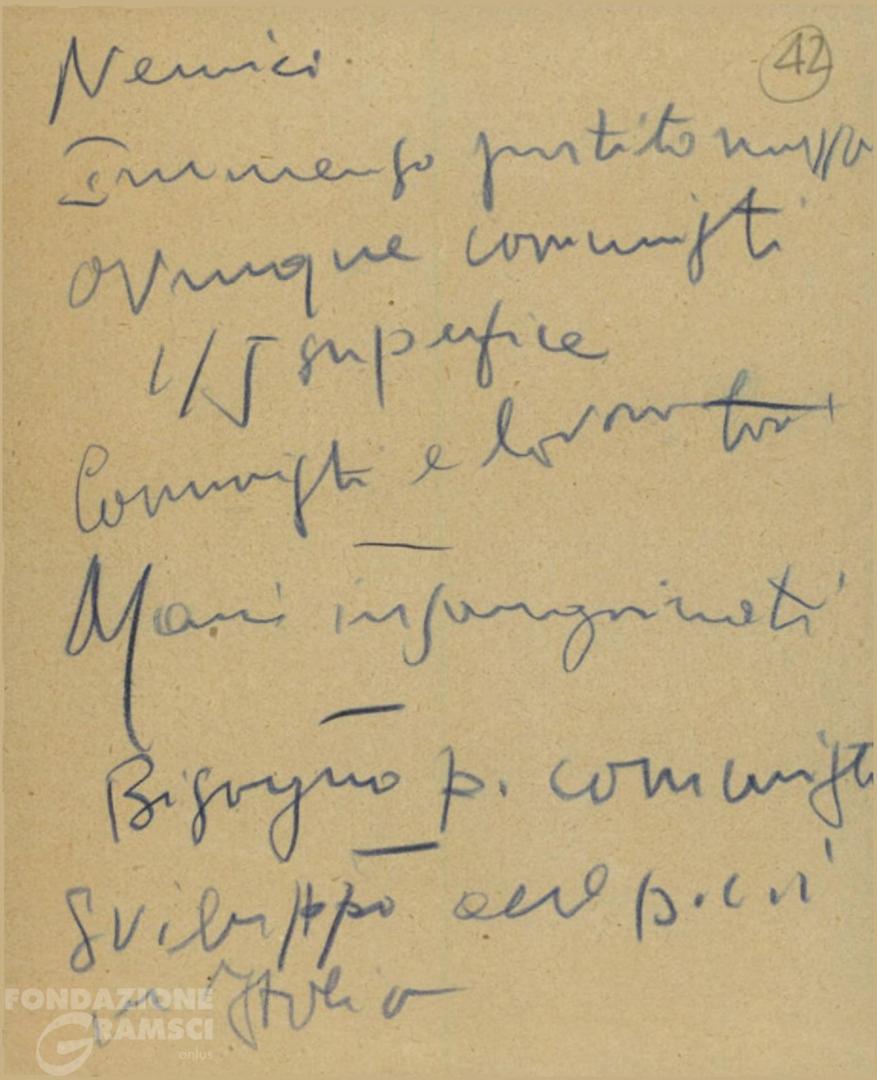 42
Nemici
Immenso partito massa
Ovunque comunisti
1/5 superfice
Comunisti e lavoratori
Mani insanguinati
Bisogno p. comunista
Sviluppo del p.c.i
in Italia
FONDAZIONE
GRAMSCI
onlus